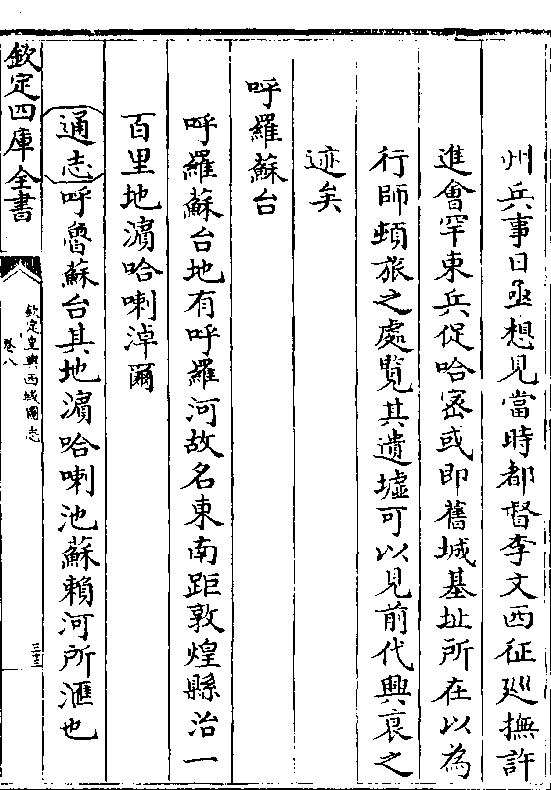 州兵事日亟想見當時都督李文西征廵撫許
進會罕東兵促哈宻或即舊城基址所在以為
行師頓旅之處覽其遺墟可以見前代興衰之
迹矣
呼羅蘇台
呼羅蘇台地有呼羅河故名東南距敦煌縣治一
百里地濵哈喇淖爾
通志呼魯蘇台其地濵哈喇池蘇賴河所滙也
欽定四庫全書
欽定皇輿西域圖志
卷八